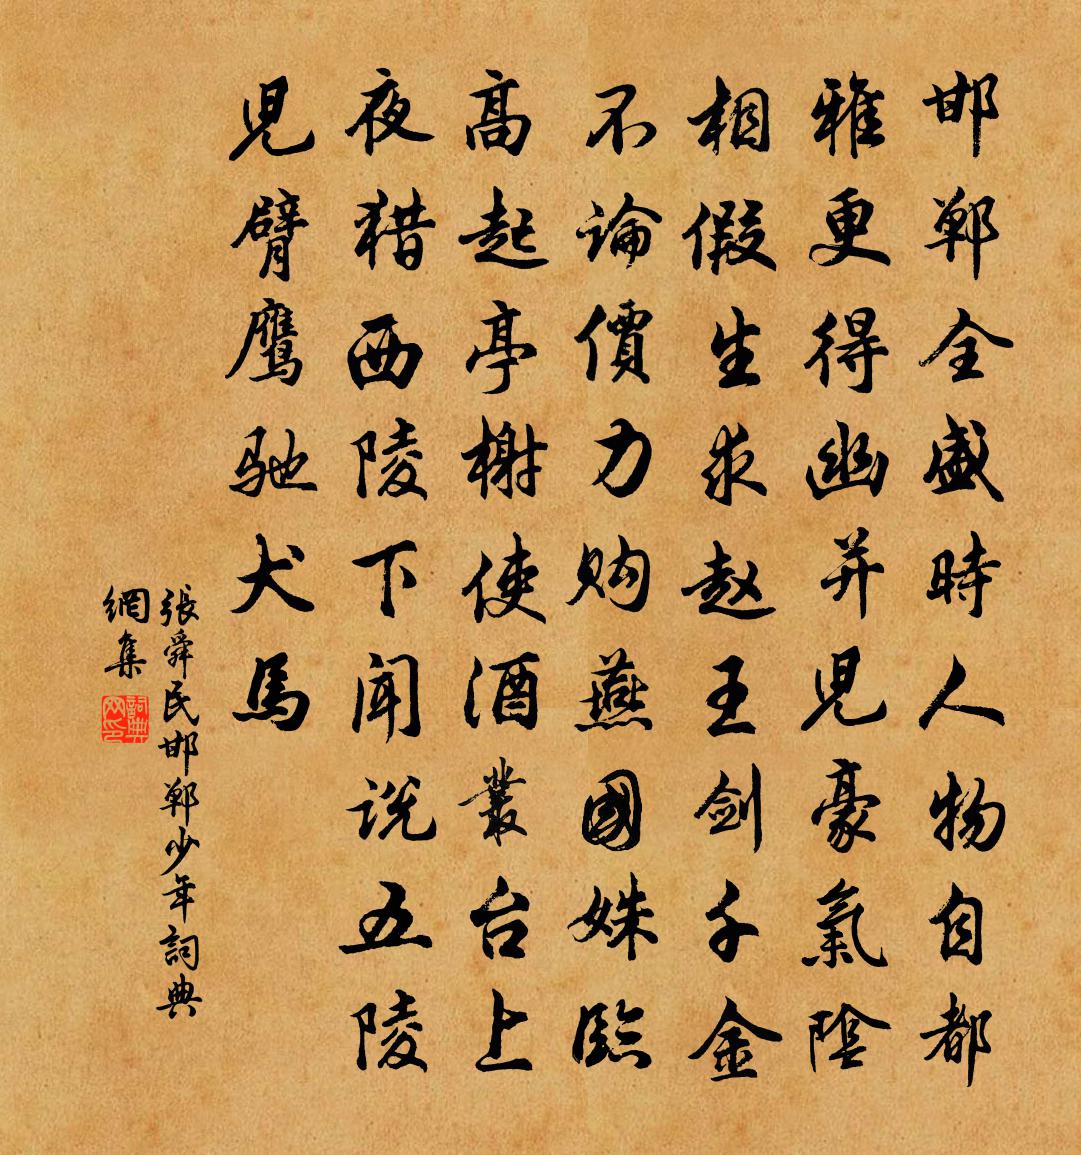 邯鄲全盛時人物自都
雅更得幽并児豪氣陰
相假生求赵王剑千金
不論價力购燕國姝臨
高起亭榭使酒叢台上
夜猎西陵下闻说五陵
児臂鹰驰犬馬
張舜民邯鄲少年詞典
網集
詞典
网印